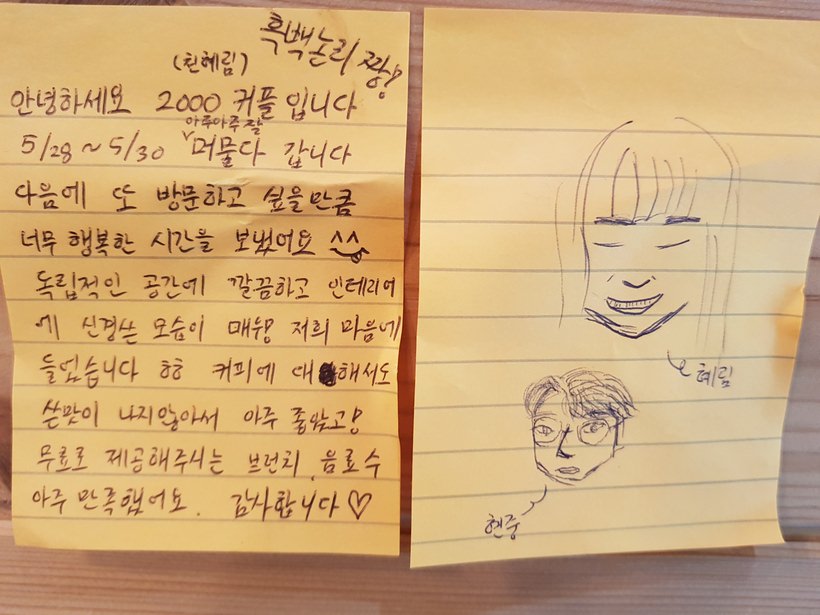 흑백논리 짱!
(친혜림)
안녕하세요 2000 커플입니다
아주아주 잘
5/28 ~ 5/30 머물다 갑니다
다음에 또 방문하고 싶을만큼
너무 행복한 시간을 보냈어요 ^^
독립적인 공간에 깔끔하고 인테리어
에 신경쓴 모습이 매우! 저희 마음에
들었습니다 ㅎㅎ 커피에 대해서도
쓴맛이 나지않아서 아주 좋았고!
무료로 제공해주시는 브런치, 음료수
아주 만족했어요. 감사합니다 ♡
혜림
현중